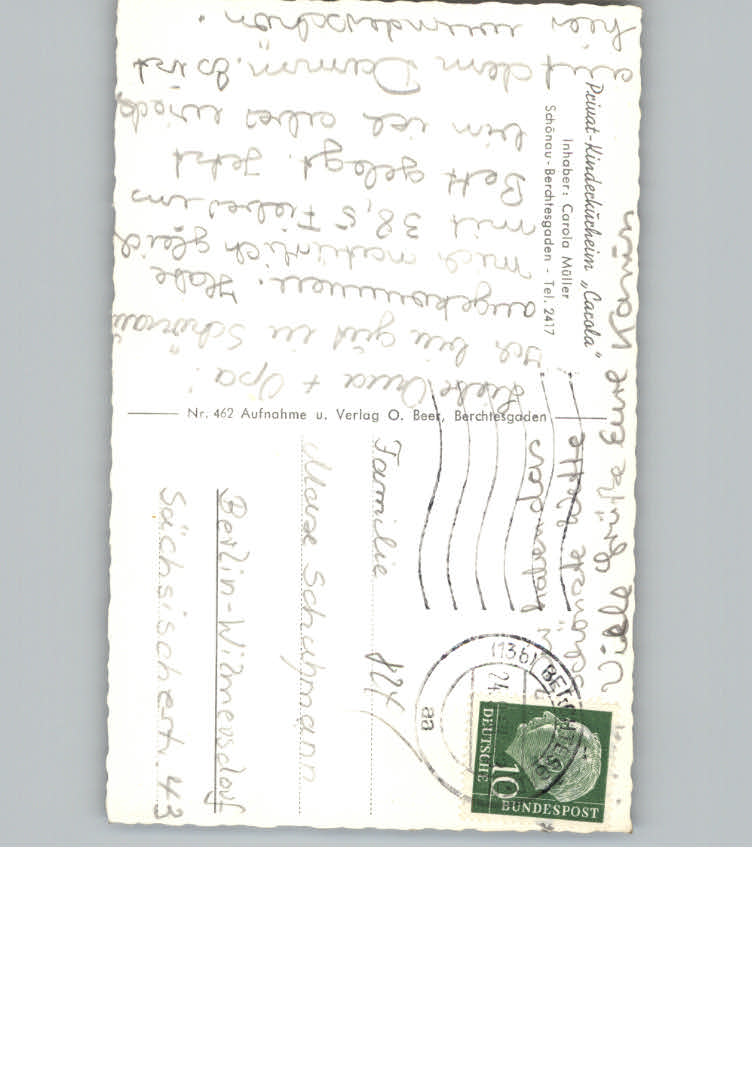 Privat-Kinderkurheim „Carola"
Inhaber: Carola Müller
Schönau-Berchtesgaden - Tel. 2417
Liebe Oma + Opa!
Ich bin gut in Schönau
angekommen. Habe
mich natürlich gleich
mit 38,5 Fieber ins
Bett gelegt. Jetzt
bin ich aber wieder
auf dem Damm. Es ist
hier wunderschön.
Nr. 462 Aufnahme u. Verlag O. Beer, Berchtesgaden
Familie
Max Schuhmann
Berlin-Wilmersdorf
Sächsischerstr. 43
824
(13b) BERCHTESG
24.
aa
DEUTSCHE
10
BUNDESPOST